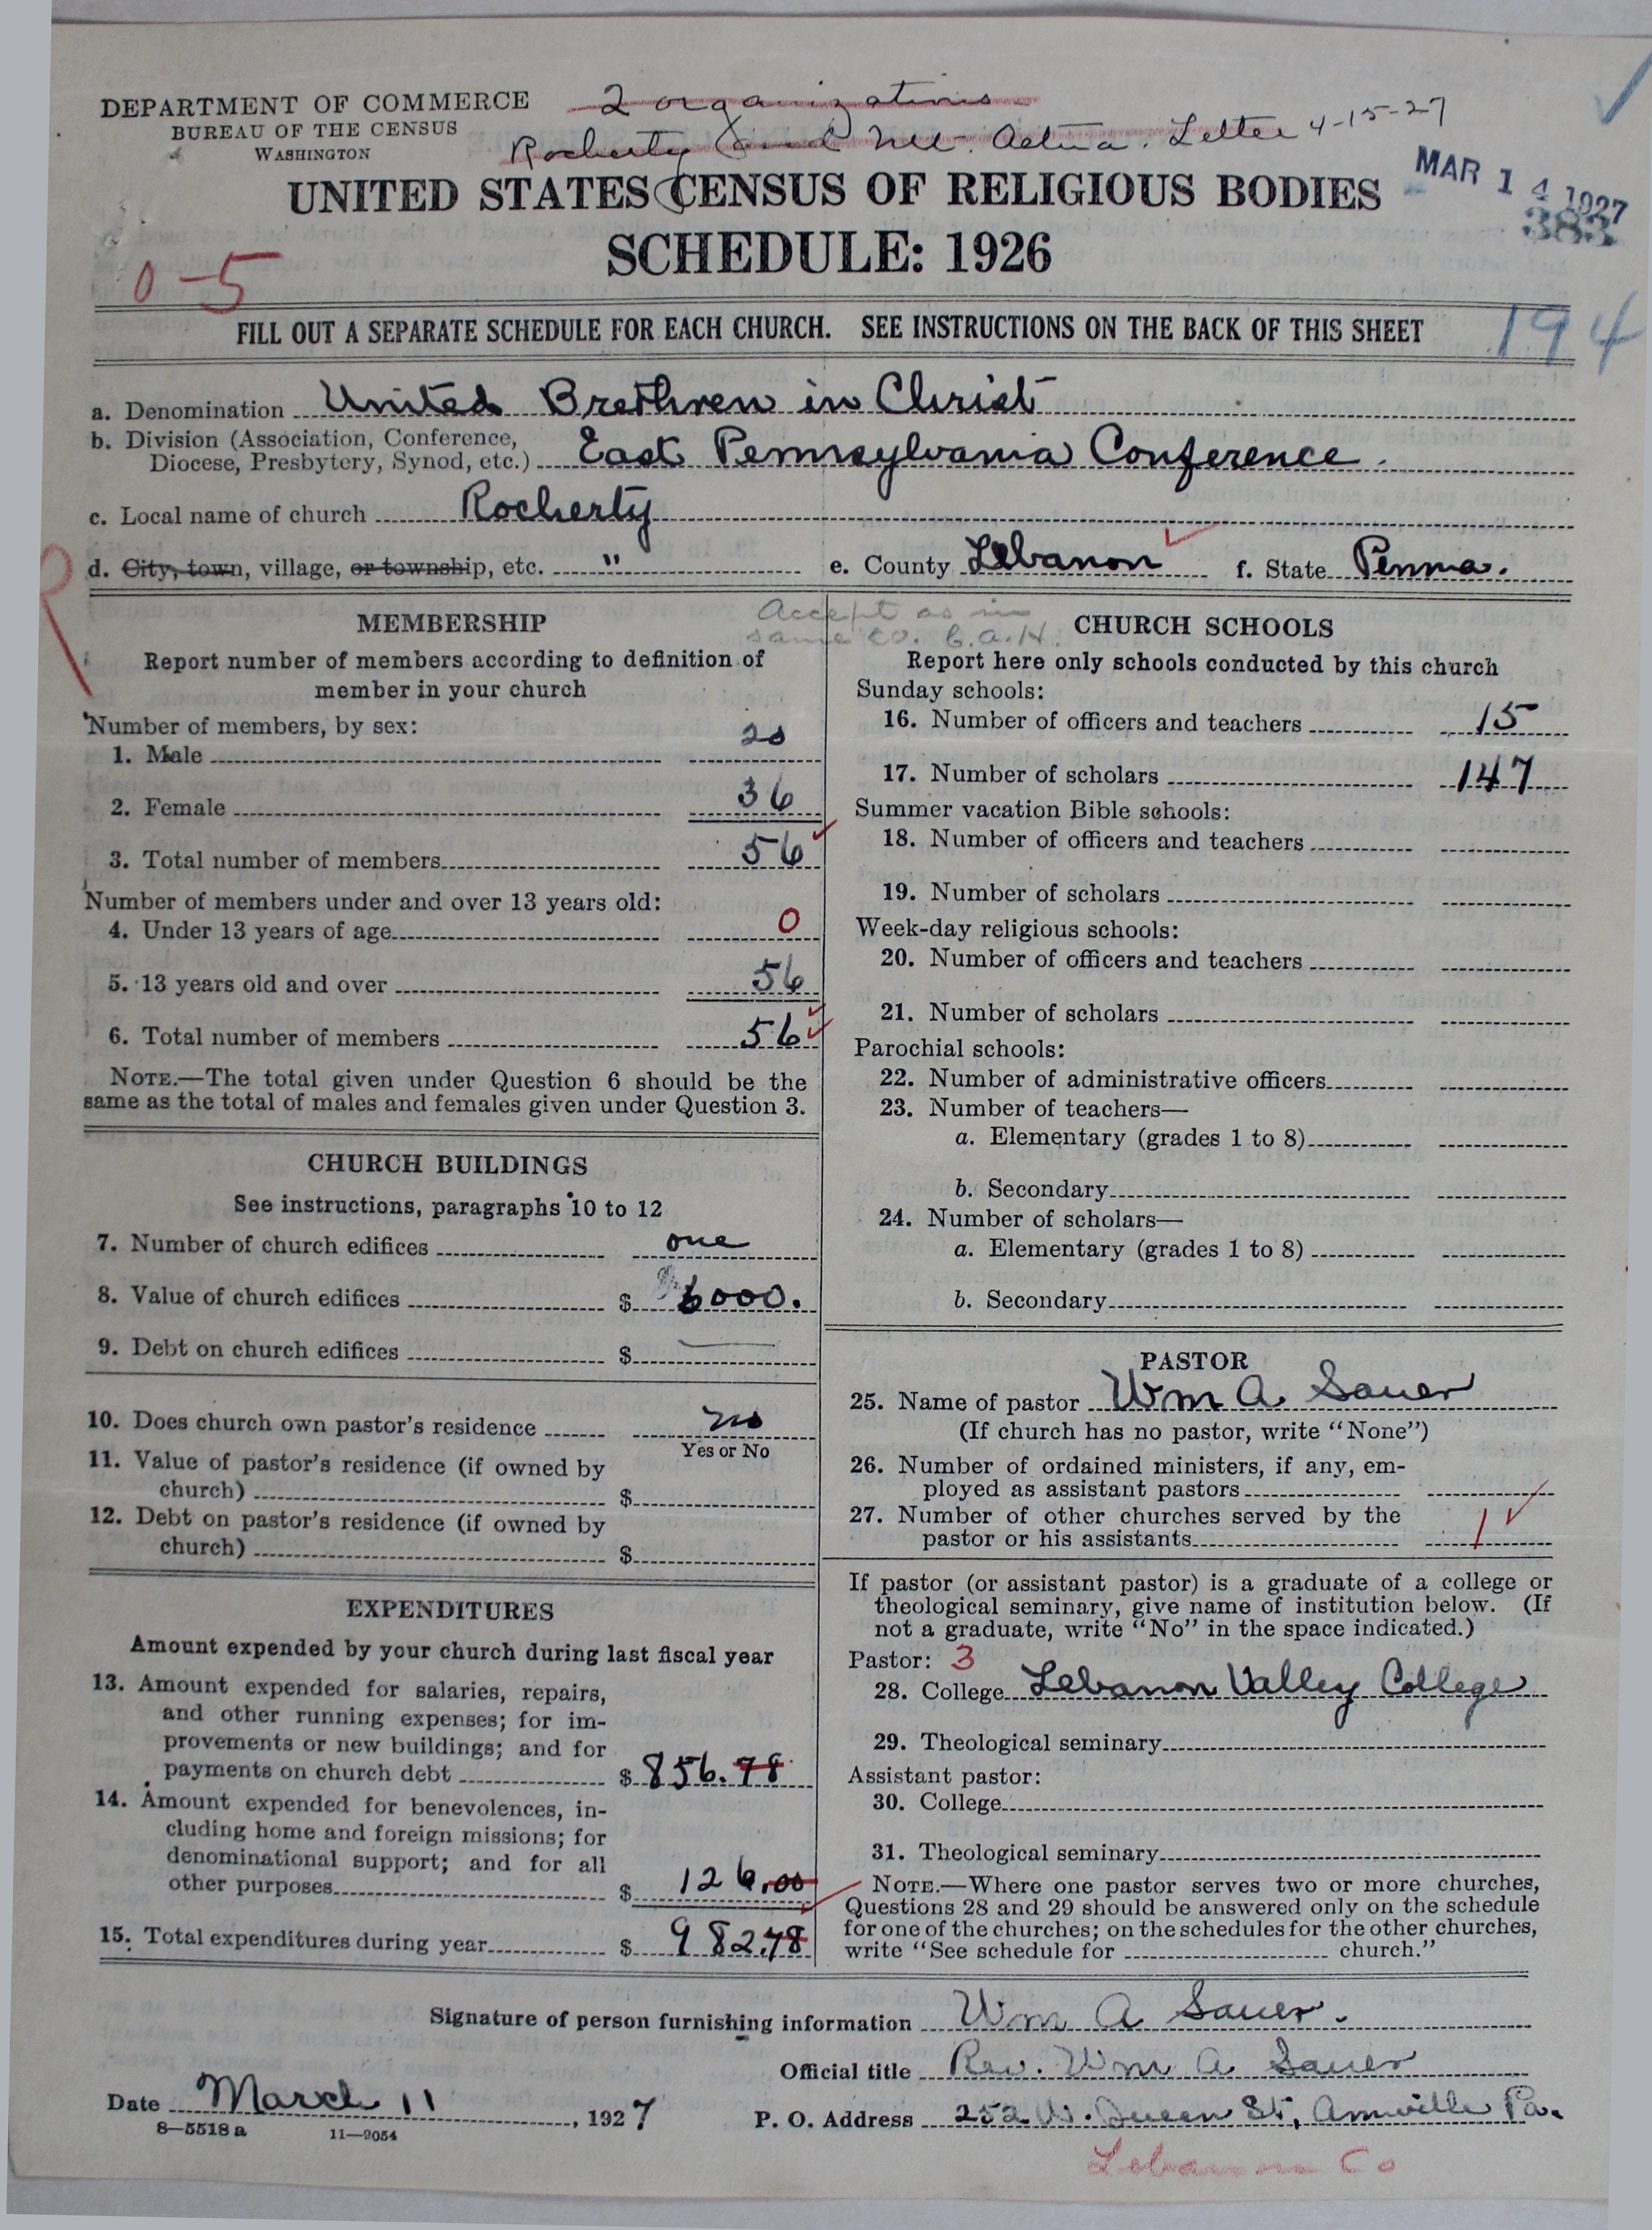 DEPARTMENT OF COMMERCE
BUREAU OF THE CENSUS
WASHINGTON
2 organizations
Rocherty and Mt. Aetna. Letter 4-15-27
MAR 14 1927
383
UNITED STATES CENSUS OF RELIGIOUS BODIES
SCHEDULE: 1926
0-5
FILL OUT A SEPARATE SCHEDULE FOR EACH CHURCH. SEE INSTRUCTIONS ON THE BACK OF THIS SHEET
194
a. Denomination United Brethren in Christ
b. Division (Association, Conference,
Diocese, Presbytery, Synod, etc.) East Pennsylvania Conference.
c. Local name of church Rocherty
d. City, town, village, or township, etc. " e. County Lebanon f. State Penna.
R
Accept as in
same co. C.A.H.
MEMBERSHIP
Report number of members according to definition of
member in your church
Number of members, by sex:
1. Male 20
2. Female 36
3. Total number of members 56
Number of members under and over 13 years old:
4. Under 13 years of age 0
5. 13 years old and over 56
6. Total number of members 56
NOTE.—The total given under Question 6 should be the
same as the total of males and females given under Question 3.
CHURCH BUILDINGS
See instructions, paragraphs 10 to 12
7. Number of church edifices one
8. Value of church edifices $ 6000.
9. Debt on church edifices $ —
10. Does church own pastor's residence no
Yes or No
11. Value of pastor's residence (if owned by
church) $
12. Debt on pastor's residence (if owned by
church) $
EXPENDITURES
Amount expended by your church during last fiscal year
13. Amount expended for salaries, repairs,
and other running expenses; for im-
provements or new buildings; and for
payments on church debt $ 856.78
14. Amount expended for benevolences, in-
cluding home and foreign missions; for
denominational support; and for all
other purposes $ 126.00
15. Total expenditures during year $ 982.78
CHURCH SCHOOLS
Report here only schools conducted by this church
Sunday schools:
16. Number of officers and teachers 15
17. Number of scholars 147
Summer vacation Bible schools:
18. Number of officers and teachers
19. Number of scholars
Week-day religious schools:
20. Number of officers and teachers
21. Number of scholars
Parochial schools:
22. Number of administrative officers
23. Number of teachers—
a. Elementary (grades 1 to 8)
b. Secondary
24. Number of scholars—
a. Elementary (grades 1 to 8)
b. Secondary
PASTOR
25. Name of pastor Wm A. Sauer
(If church has no pastor, write "None")
26. Number of ordained ministers, if any, em-
ployed as assistant pastors
27. Number of other churches served by the
pastor or his assistants 1
If pastor (or assistant pastor) is a graduate of a college or
theological seminary, give name of institution below. (If
not a graduate, write "No" in the space indicated.)
Pastor: 3
28. College Lebanon Valley College
29. Theological seminary
Assistant pastor:
30. College
31. Theological seminary
NOTE.—Where one pastor serves two or more churches,
Questions 28 and 29 should be answered only on the schedule
for one of the churches; on the schedules for the other churches,
write "See schedule for church."
Signature of person furnishing information Wm A Sauer.
Official title Rev. Wm A Sauer
Date March 11, 1927 P. O. Address 252 W. Queen St, Annville Pa.
8—5518 a 11—9054
Lebanon Co